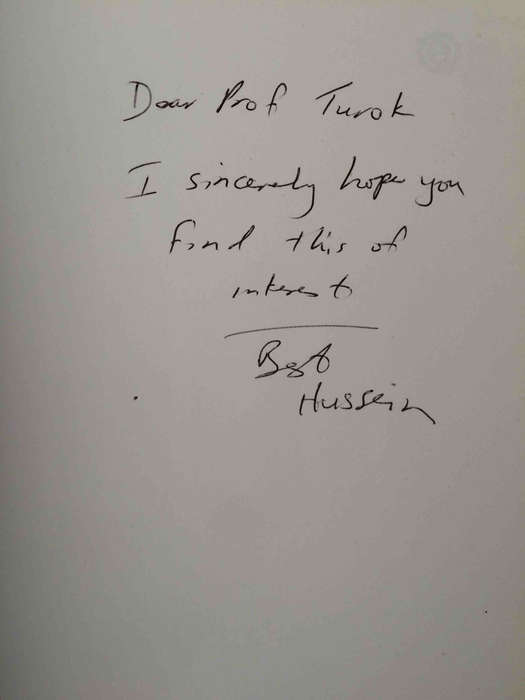 Dear Prof Turok
I sincerely hope you
find this of
interest
Best
Hussein